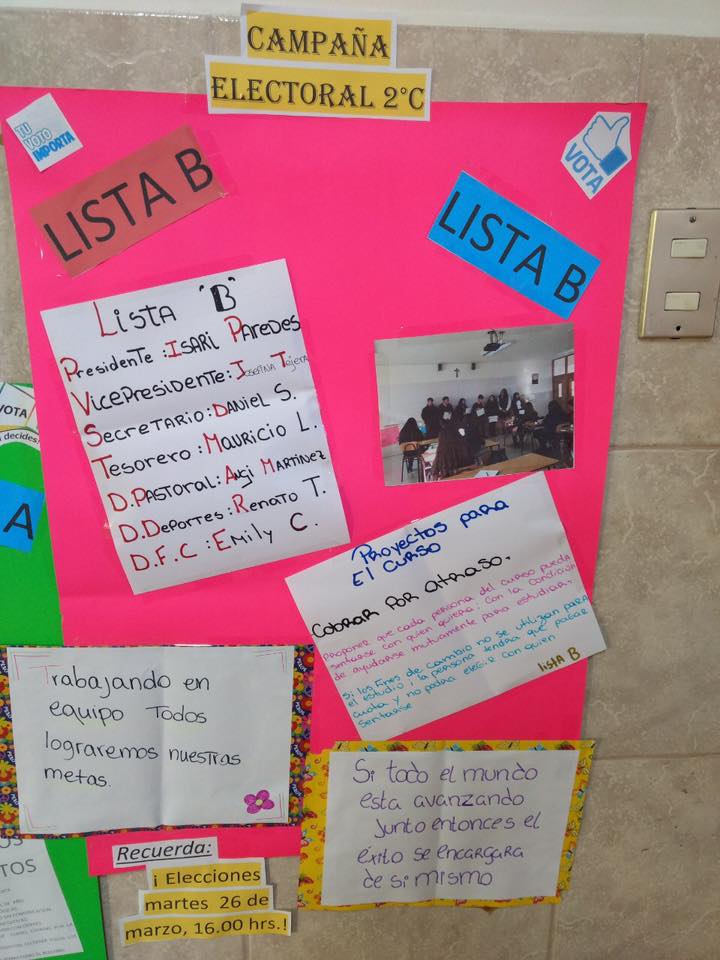 CAMPAÑA
ELECTORAL 2°C
TU
VOTO
IMPORTA
VOTA
LISTA B
LISTA B
Lista "B"
Presidente : Isari Paredes
Vicepresidente : Josefina Tejera
Secretario : Daniel S.
Tesorero : Mauricio L.
D.Pastoral : Angi Martinez
D.Deportes : Renato T.
D.F.C : Emily C.
Proyectos para
El curso
Cobrar por atraso.
Proponer que cada persona del curso pueda
sentarse con quien quiera; con la condicion
de ayudarse mutuamente para estudiar.
Si los fines de cambio no se utilizan para
el estudio ; la persona tendra que pagar
cuota y no podra elegir con quien
sentarse
lista B
Trabajando en
equipo Todos
lograremos nuestras
metas.
Si todo el mundo
esta avanzando
junto entonces el
éxito se encargara
de si mismo
Recuerda:
¡ Elecciones
martes 26 de
marzo, 16.00 hrs.!
VOTA
decides!
A
OS
TOS